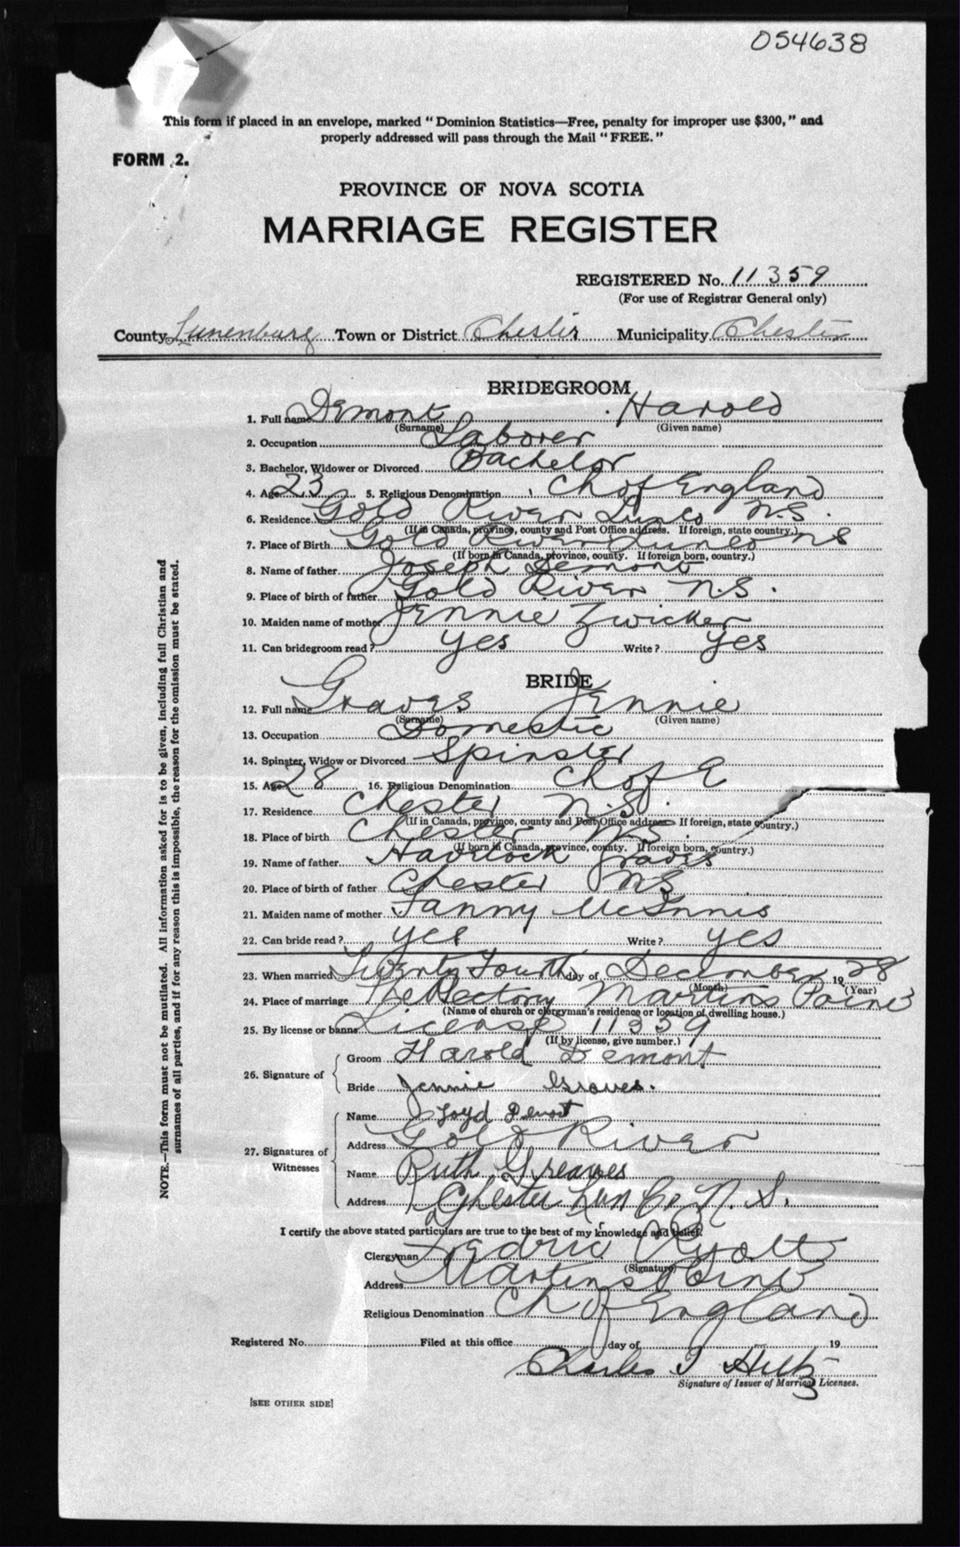 054638
This form if placed in an envelope, marked "Dominion Statistics—Free, penalty for improper use $300," and
properly addressed will pass through the Mail "FREE."
FORM 2.
PROVINCE OF NOVA SCOTIA
MARRIAGE REGISTER
REGISTERED No. 11359
(For use of Registrar General only)
County Lunenburg Town or District Chester Municipality Chester
BRIDEGROOM
1. Full name Demont Harold
(Surname) (Given name)
2. Occupation Laborer
3. Bachelor, Widower or Divorced Bachelor
4. Age 23 5. Religious Denomination Ch of England
6. Residence Gold River Lun Co N.S.
(If in Canada, province, county and Post Office address. If foreign, state country.)
7. Place of Birth Gold River Lun Co NS
(If born in Canada, province, county. If foreign born, country.)
8. Name of father Joseph Demont
9. Place of birth of father Gold River N.S.
10. Maiden name of mother Jennie Zwicker
11. Can bridegroom read? yes Write? yes
BRIDE
12. Full name Graves Jennie
(Surname) (Given name)
13. Occupation Domestic
14. Spinster, Widow or Divorced Spinster
15. Age 28 16. Religious Denomination Ch of E
17. Residence Chester N.S.
(If in Canada, province, county and Post Office address. If foreign, state country.)
18. Place of birth Chester N.S.
(If born in Canada, province, county. If foreign born, country.)
19. Name of father Havelock Graves
20. Place of birth of father Chester NS
21. Maiden name of mother Fanny McInnis
22. Can bride read? yes Write? yes
23. When married Twenty Fourth day of December 1928
(Month) (Year)
24. Place of marriage The Rectory Martins Point
(Name of church or clergyman's residence or location of dwelling house.)
25. By license or banns License 11359
(If by license, give number.)
26. Signature of
Groom Harold Demont
Bride Jennie Graves.
27. Signatures of Witnesses
Name Loyd Demont
Address Gold River
Name Ruth Greaves
Address Chester Lun Co. N. S.
I certify the above stated particulars are true to the best of my knowledge and belief.
Clergyman Fedric Ryolt
(Signature)
Address Martins Point
Religious Denomination Ch of England
Registered No. Filed at this office day of 19
Charles I Hiltz
Signature of Issuer of Marriage Licenses.
[SEE OTHER SIDE]
NOTE.—This form must not be mutilated. All information asked for is to be given, including full Christian and
surnames of all parties, and if for any reason this is impossible, the reason for the omission must be stated.